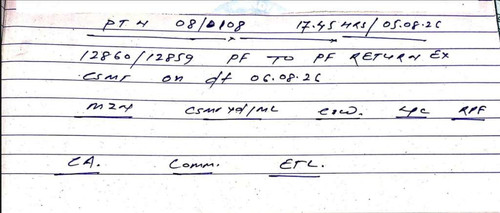 PTN 08/0108 17.45 HRS/05.08.26
12860/12859 PF TO PF RETURN EX
CSMT on df 06.08.26
MZN CSMT yd/ML COW. LPC RPF
CA. Comm. ETL.